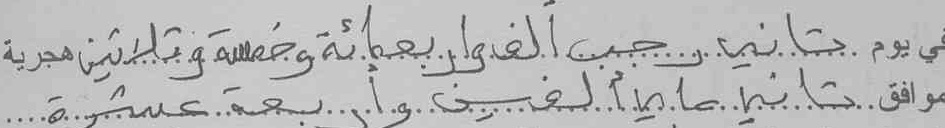 في يوم ثاني رجب ألف وأربعمائة وخمسة وثلاثين هجرية
موافق ثاني ماي ألفين وأربعة عشرة